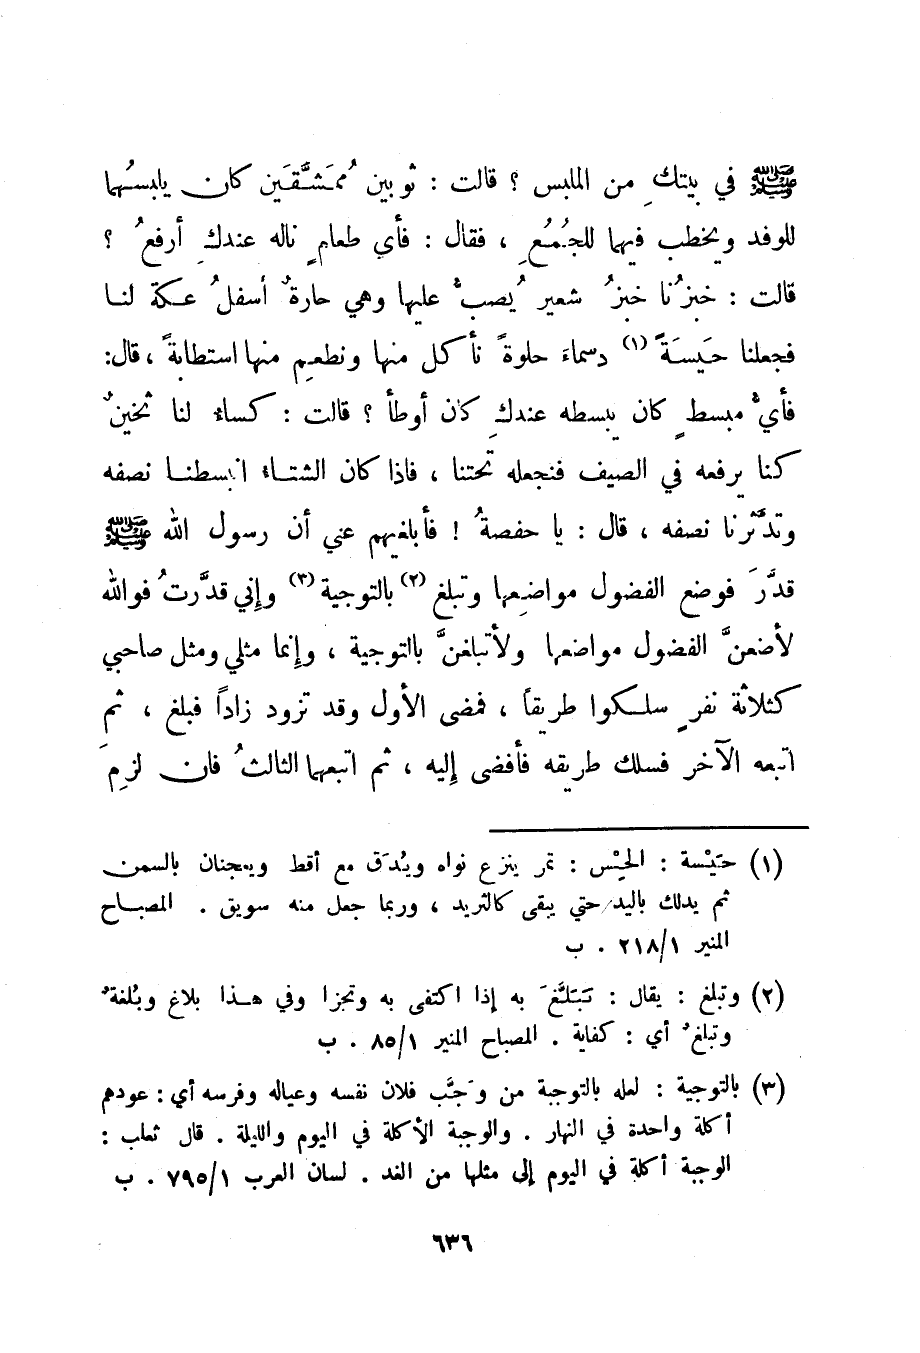 ﷺ في بيتكِ من الملبس ؟ قالت : ثوبين مُمَشَّقَين كان يلبسُهما
للوفد ويخطب فيهما للجُمُعِ ، فقال : فأي طعامٍ ناله عندكِ أرفعُ ؟
قالت : خبزُنا خبزُ شعير يُصبُّ عليها وهي حارةٌ أسفلُ عكة لنا
فجعلنا حَيسَةً (١) دسماءَ حلوةً نأكل منها ونطعم منها استطابةً ، قال:
فأيُّ مبسطٍ كان يبسطه عندكِ كان أوطأ ؟ قالت : كساء لنا ثخينٌ
كنا نرفعه في الصيف فنجعله تحتنا ، فاذا كان الشتاء ابسطنا نصفه
وتدَّثرنا نصفه ، قال : يا حفصةُ ! فأبلغيهم عني أن رسول الله ﷺ
قدَّرَ فوضع الفضول مواضعها وتبلغ (٢) بالتوجية (٣) وإني قدَّرتُ فوالله
لأضعنَّ الفضول مواضعها ولأتبلغنَّ بالتوجية ، وإنما مثلي ومثل صاحبي
كثلاثة نفرٍ سلكوا طريقاً ، فمضى الأول وقد تزود زاداً فبلغ ، ثم
اتبعه الآخر فسلك طريقه فأفضى إليه ، ثم اتبعهما الثالثُ فان لزِمَ
(١) حَيْسة : الحيْس : تمر ينزع نواه ويُدَق مع أقط ويعجنان بالسمن
ثم يدلك باليد حتي يبقى كالثريد ، وربما جعل منه سويق . المصباح
المنير ٢١٨/١ . ب
(٢) وتبلغ : يقال : تَبَلَّغَ به إذا اكتفى به وتجزا وفي هذا بلاغ وبُلغةٌ
وتبلغٌ أي : كفاية . المصباح المنير ٨٥/١ . ب
(٣) بالتوجية : لعله بالتوجبة من وَجَّب فلان نفسه وعياله وفرسه أي : عودهم
أكلة واحدة في النهار . والوجبة الأكلة في اليوم والليلة . قال ثعلب :
الوجبة أكلة في اليوم إلى مثلها من الغد . لسان العرب ٧٩٥/١ . ب
٦٣٦